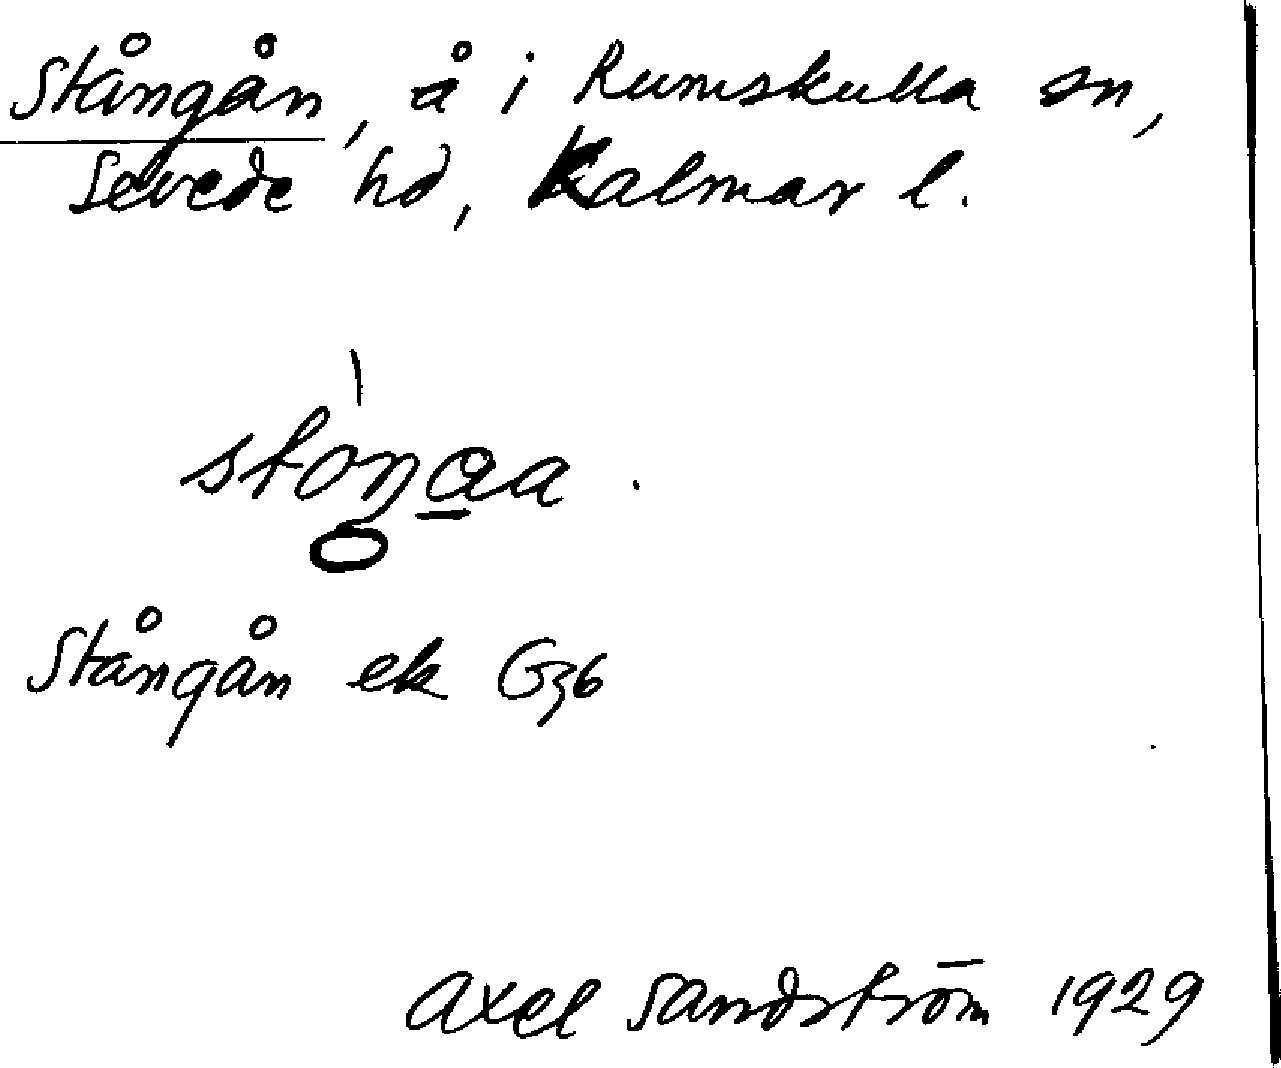 Stångån, å i Rumskulla sn,
Sevede hd, Kalmar l.
Stångån ek G36
Axel Sandström 1929